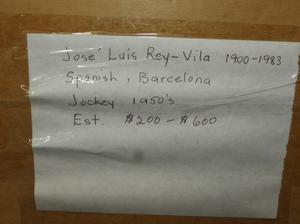 José Luis Rey-Vila 1900-1983
Spanish, Barcelona
Jockey 1950's
Est. $200-$600